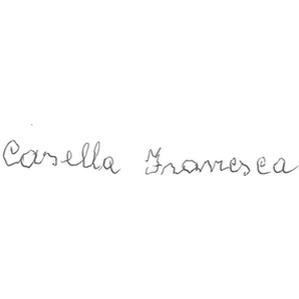 Casella Francesca